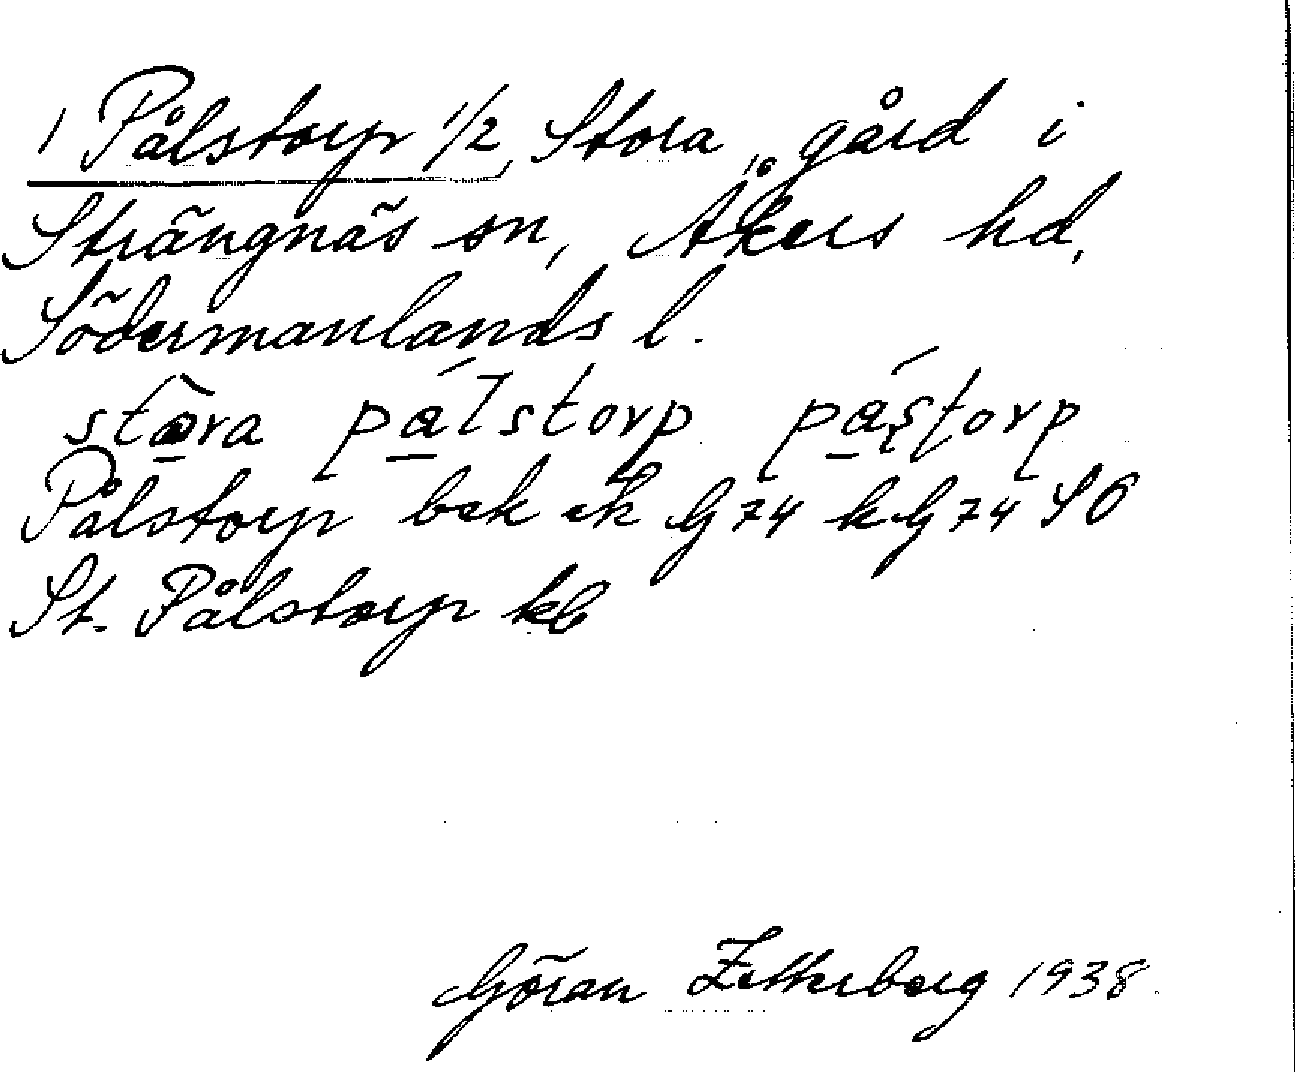 1 Pålstorp 1/2, Stora, gård i
Strängnäs sn, Åkers hd,
Södermanlands l.
stora pálstorp pástorp
Pålstorp bek ek G 74 k G 74 SO
St. Pålstorp kb
Göran Zetterberg 1938